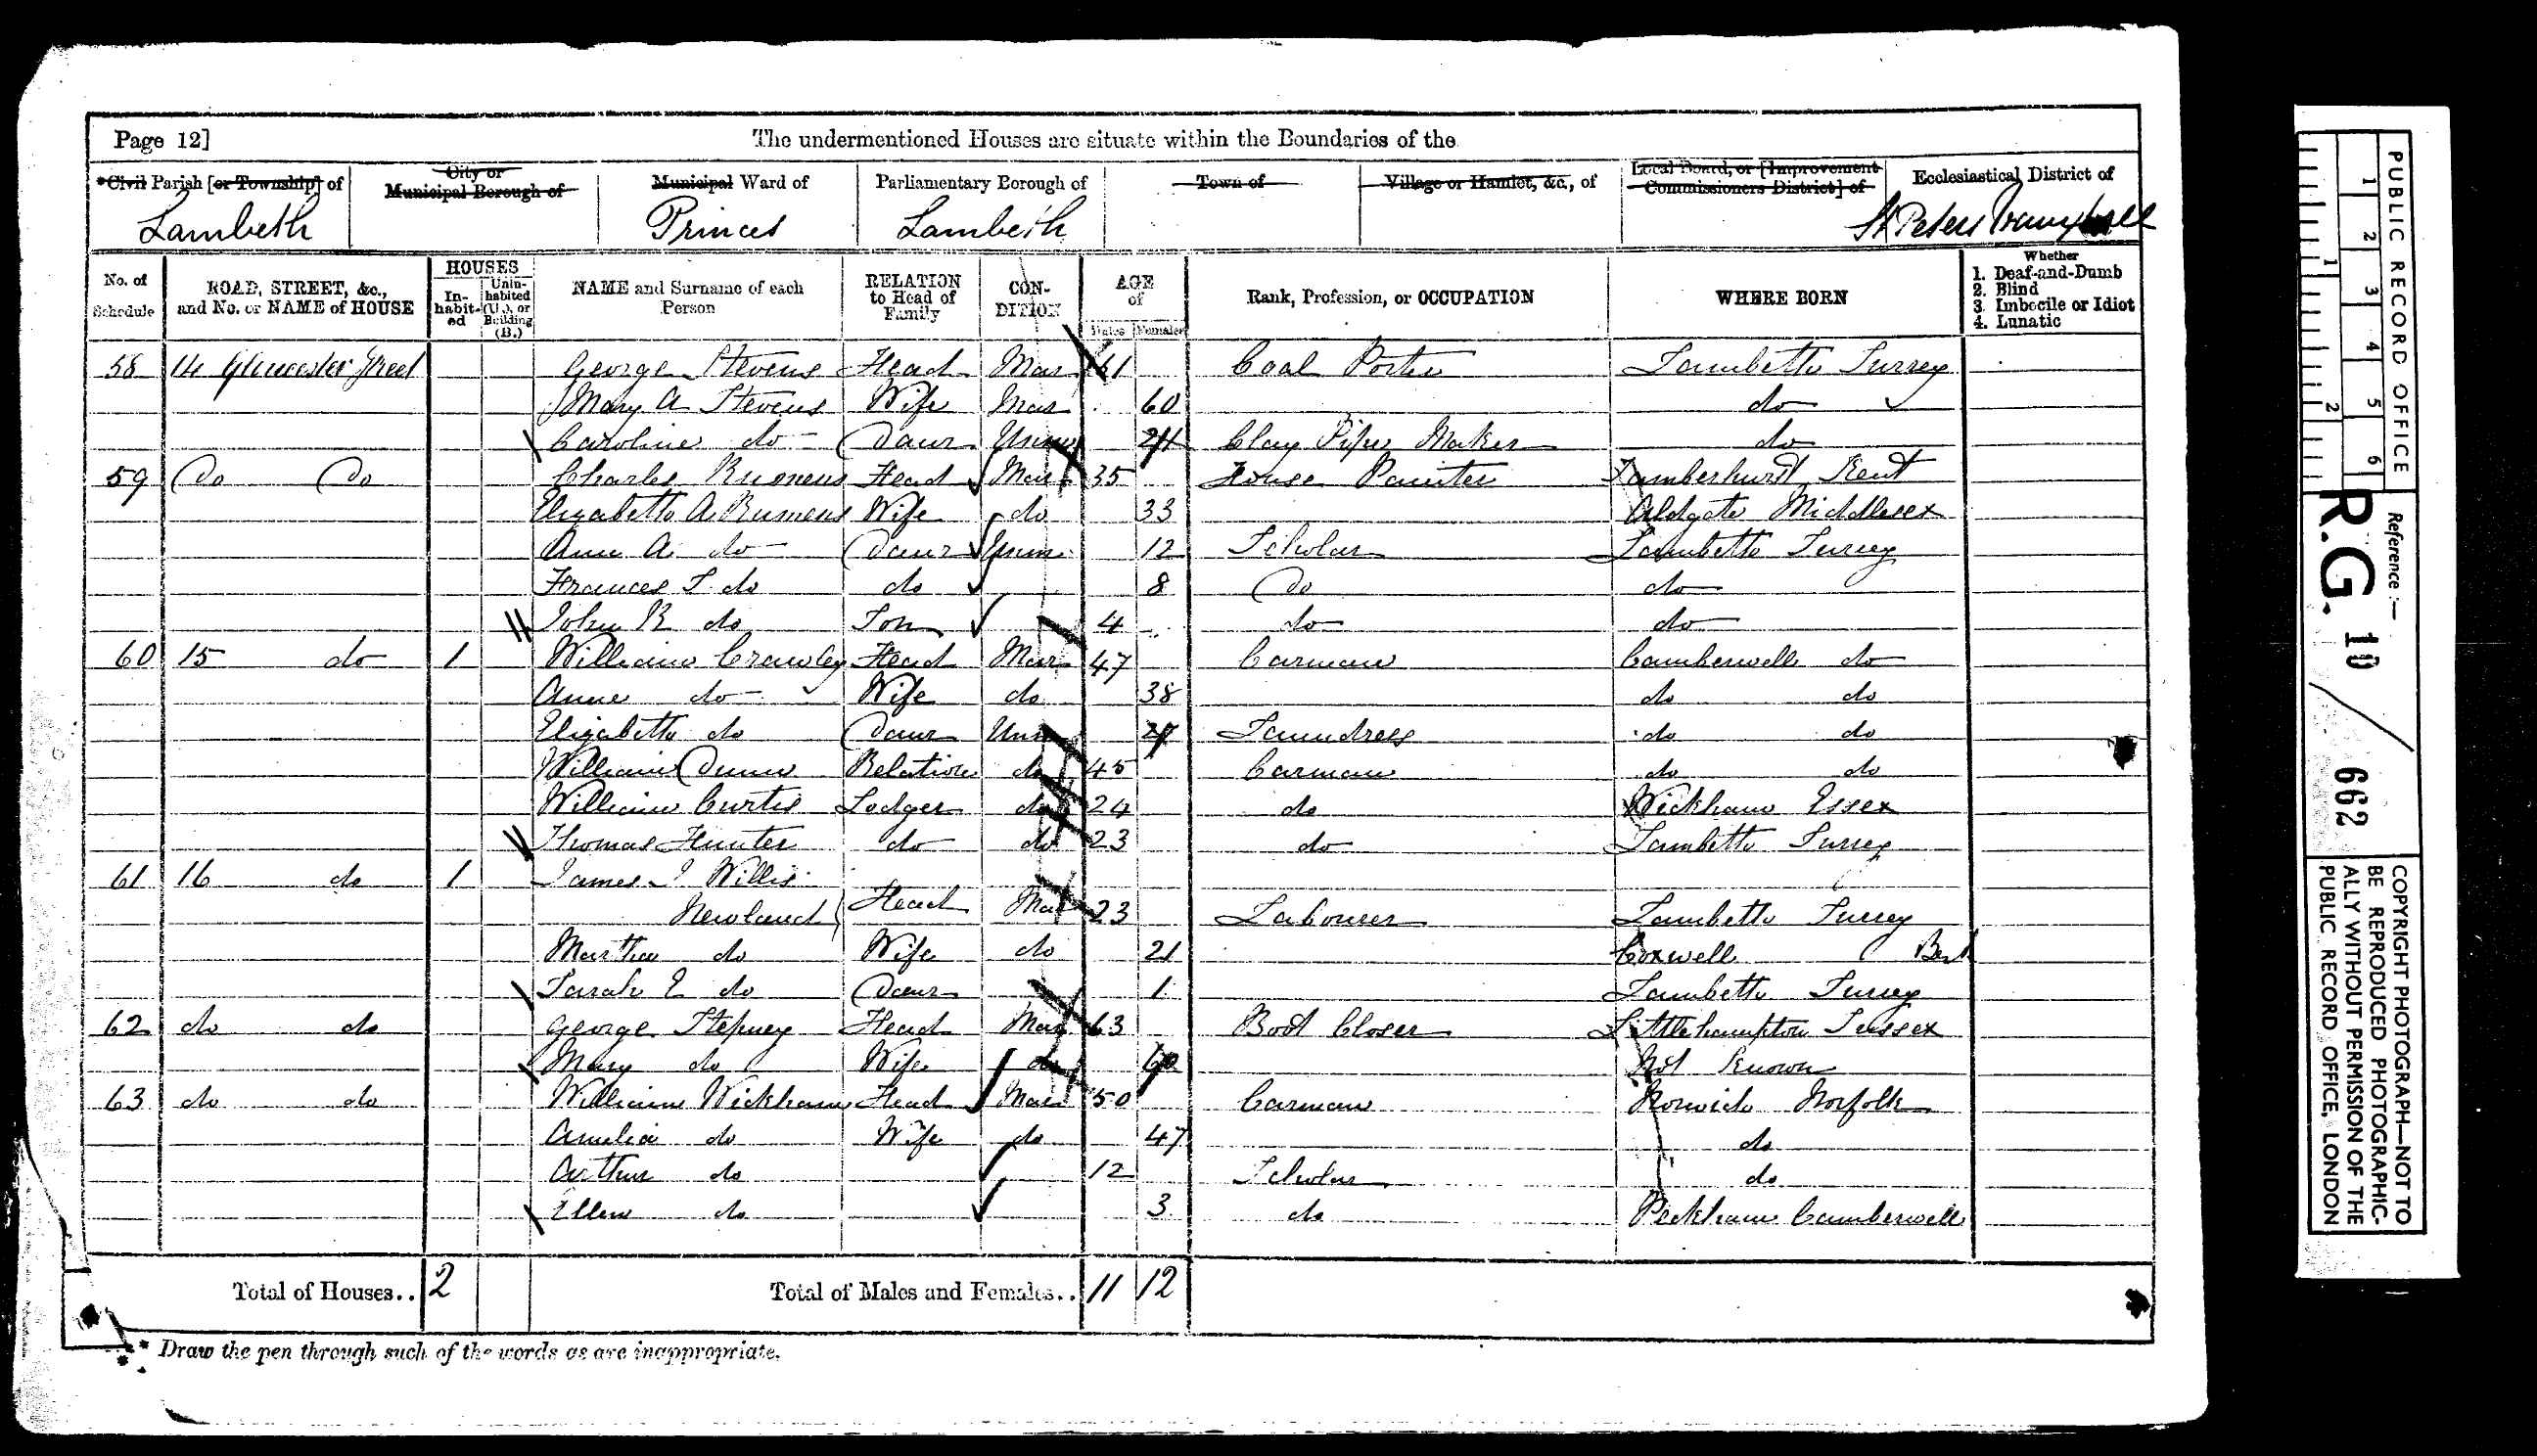 Page 12]
The undermentioned Houses are situate within the Boundaries of the
*Civil Parish [or Township] of
City or Municipal Borough of
Municipal Ward of
Parliamentary Borough of
Town of
Village or Hamlet, &c., of
Local Board, or [Improvement Commissioners District] of
Ecclesiastical District of
Lambeth Princes Lambeth St Peters Vauxhall
No. of Schedule
ROAD, STREET, &c., and No. or NAME of HOUSE
HOUSES
Inhabited
Uninhabited (U.), or Building (B.)
NAME and Surname of each Person
RELATION to Head of Family
CONDITION
AGE of
Males Females
Rank, Profession, or OCCUPATION
WHERE BORN
Whether
1. Deaf-and-Dumb
2. Blind
3. Imbecile or Idiot
4. Lunatic
58 14 Gloucester Street George Stevens Head Mar 61 Coal Porter Lambeth Surrey
Mary A Stevens Wife Mar 60 do
Caroline do Daur Unm 24 Clay Pipe Maker do
59 Do Do Charles Rumens Head Mar 35 House Painter Lamberhurst Kent
Elizabeth A Rumens Wife do 33 Aldgate Middlesex
Ann A do Daur Unm 12 Scholar Lambeth Surrey
Frances S do do 8 Do do
John R do Son 4 do do
60 15 do 1 William Crawley Head Mar 47 Carman Camberwell do
Anne do Wife do 38 do do
Elizabeth do Daur Unm Laundress do do
William Dunn Relative do 45 Carman do do
William Curtis Lodger do 24 do Wickham Essex
Thomas Hunter do do 23 do Lambeth Surrey
61 16 do 1 James J Willis
Newland Head Mar 23 Labourer Lambeth Surrey
Martha do Wife do 21 Coxwell Berk
Sarah E do Daur 1 Lambeth Surrey
62 do do George Stepney Head Mar 63 Boot Closer Littlehampton Sussex
Mary do Wife do 60 Not Known
63 do do William Wickham Head Mar 50 Carman Norwich Norfolk
Amelia do Wife do 47 do
Arthur do 12 Scholar do
Ellen do 3 do Peckham Camberwell
Total of Houses.. 2 Total of Males and Females.. 11 12
* Draw the pen through such of the words as are inappropriate.
PUBLIC RECORD OFFICE
1 2 3 4 5 6
1 2
Reference:—
R.G. 10 / 662
COPYRIGHT PHOTOGRAPH—NOT TO
BE REPRODUCED PHOTOGRAPHIC-
ALLY WITHOUT PERMISSION OF THE
PUBLIC RECORD OFFICE, LONDON